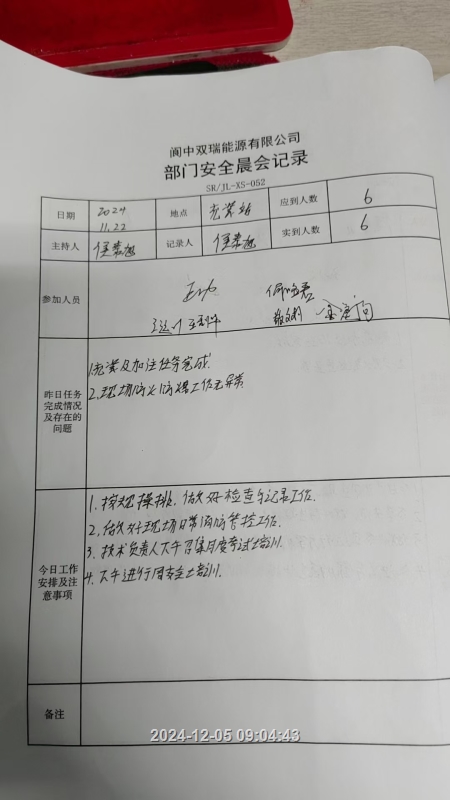 阆中双瑞能源有限公司
部门安全晨会记录
SR/JL-XS-052
日期 2024 11.22 地点 充装站 应到人数 6
主持人 记录人 实到人数 6
参加人员
昨日任务完成情况及存在的问题
1.充装及加注任务完成.
2.现场防火防爆工作无异常
今日工作安排及注意事项
1.按规操排,做好检查与记录工作.
2.做好现场日常消防管控工作.
3.技术负责人下午召集月度考试培训.
4.下午进行周安全培训.
备注
2024-12-05 09:04:43